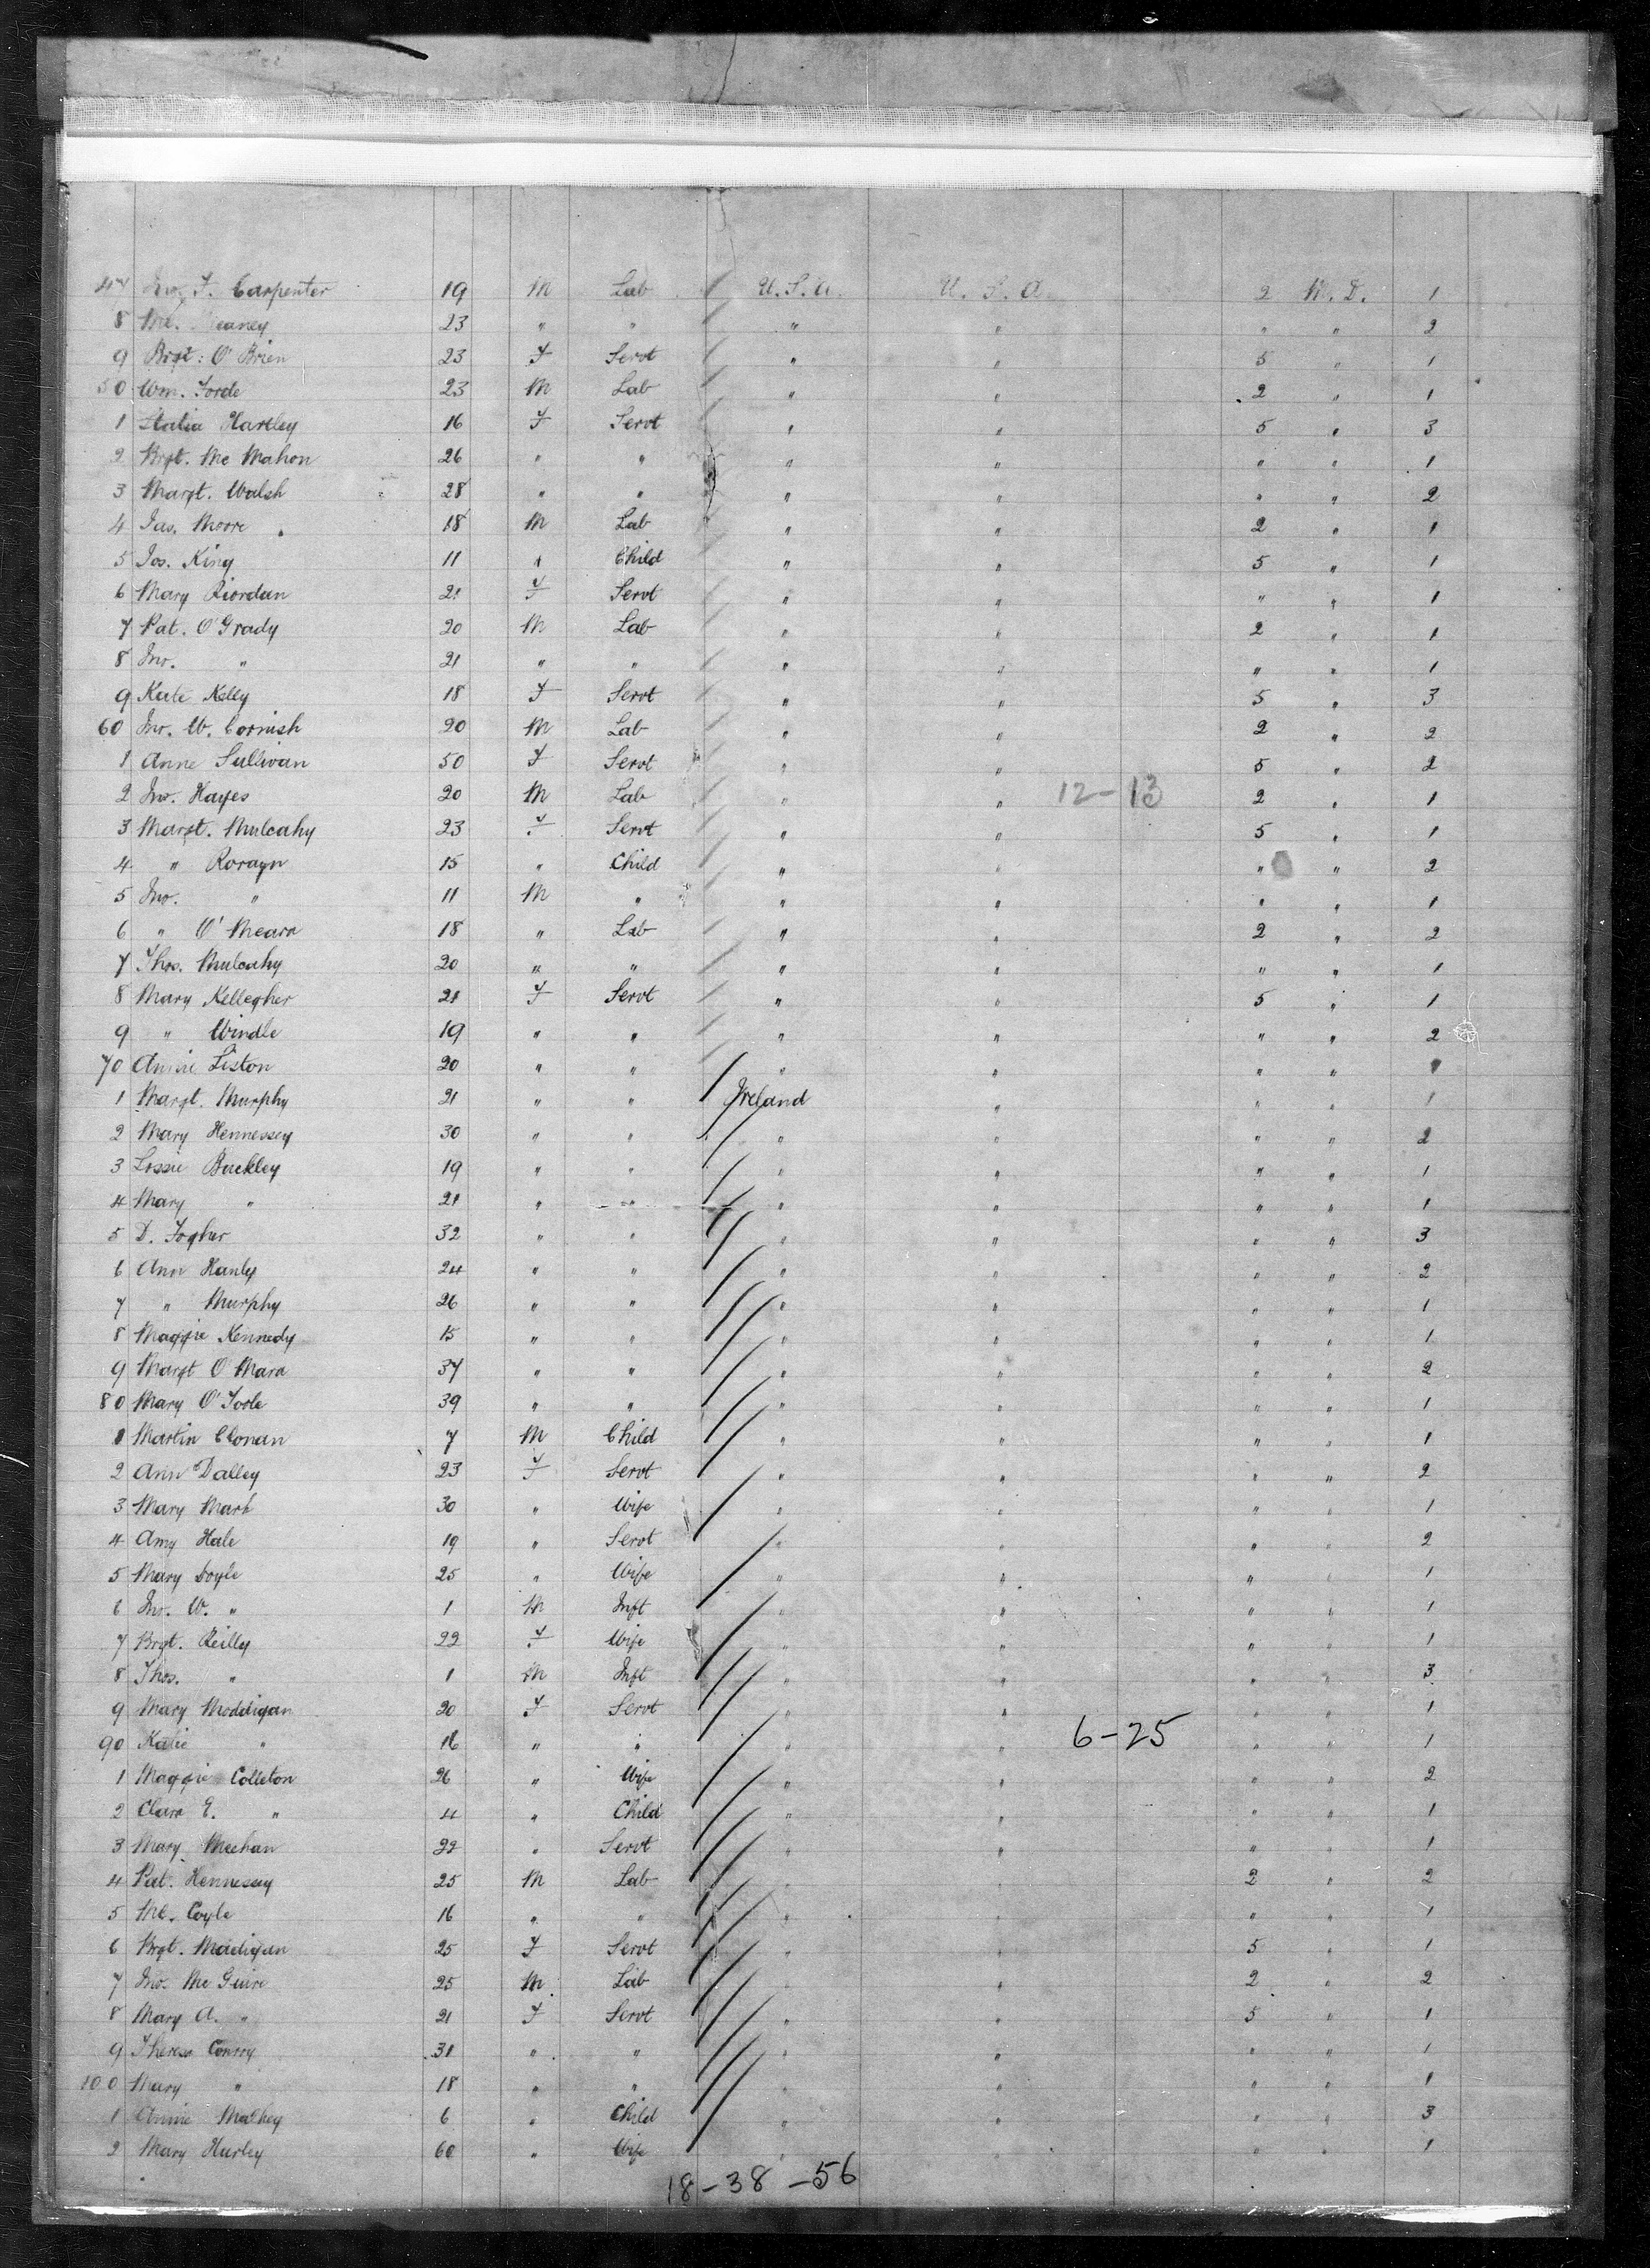 47 Jno. F. Carpenter 19 M Lab / U.S.A. U.S.A. 2 M.D. 1
8 Ml. Meaney 23 " " / " " " " 2
9 Brgt: O'Brien 23 F Servt / " " 5 " 1
50 Wm. Forde 23 M Lab / " " 2 " 1
1 Statia Hartley 16 F Servt / " " 5 " 3
2 Brgt. Mc Mahon 26 " " / " " " " 1
3 Margt. Walsh 28 " " / " " " " 2
4 Jas. Moore 18 M Lab / " " 2 " 1
5 Jos. King 11 " Child / " " 5 " 1
6 Mary Riordan 21 F Servt / " " " " 1
7 Pat. O'Grady 20 M Lab / " " 2 " 1
8 Jno. " 21 " " / " " " " 1
9 Kate Kelly 18 F Servt / " " 5 " 3
60 Jno. W. Cornish 20 M Lab / " " 2 " 2
1 Anne Sullivan 50 F Servt / " " 5 " 2
2 Jno. Hayes 20 M Lab / " " 12-13 2 " 1
3 Margt. Mulcahy 23 F Servt / " " 5 " 1
4 " Roragn 15 " Child / " " " " 2
5 Jno. " 11 M " / " " " " 1
6 " O'Meara 18 " Lab / " " 2 " 2
7 Thos. Mulcahy 20 " " / " " " " 1
8 Mary Kellegher 21 F Servt / " " 5 " 1
9 " Windle 19 " " / " " " " 2
70 Annie Liston 20 " " / " " " " 1
1 Margt. Murphy 21 " " / Ireland " " " 1
2 Mary Hennessey 30 " " / " " " " 2
3 Lissie Buckley 19 " " / " " " " 1
4 Mary " 21 " " / " " " " 1
5 D. Fogher 32 " " / " " " " 3
6 Ann Hanly 24 " " / " " " " 2
7 " Murphy 26 " " / " " " " 1
8 Maggie Kennedy 15 " " / " " " " 1
9 Margt O'Mara 37 " " / " " " " 2
80 Mary O'Toole 39 " " / " " " " 1
1 Martin Clonan 7 M Child / " " " " 1
2 Ann Dalley 23 F Servt / " " " " 2
3 Mary Mark 30 " Wife / " " " " 1
4 Amy Hale 19 " Servt / " " " " 2
5 Mary Doyle 25 " Wife / " " " " 1
6 Jno. W. " 1 M Inft / " " " " 1
7 Brgt. Reilly 22 F Wife / " " " " 1
8 Thos. " 1 M Inft / " " " " 3
9 Mary Maddigan 20 F Servt / " " " " 1
90 Katie " 16 " " / " " 6-25 " " 1
1 Maggie Colleton 26 " Wife / " " " " 2
2 Clara E. " 4 " Child / " " " " 1
3 Mary Meehan 22 " Servt / " " " " 1
4 Pat. Hennessey 25 M Lab / " " 2 " 2
5 Ml. Coyle 16 " " / " " " " 1
6 Brgt. Madigan 25 F Servt / " " 5 " 1
7 Jno. Mc Guire 25 M Lab / " " 2 " 2
8 Mary A. " 21 F Servt / " " 5 " 1
9 Theresa Conroy 31 " " / " " " " 1
100 Mary " 18 " " / " " " " 1
1 Annie 6 " Child / " " " " 3
2 Mary Hurley 60 " Wife " " " " 1
18-38-56